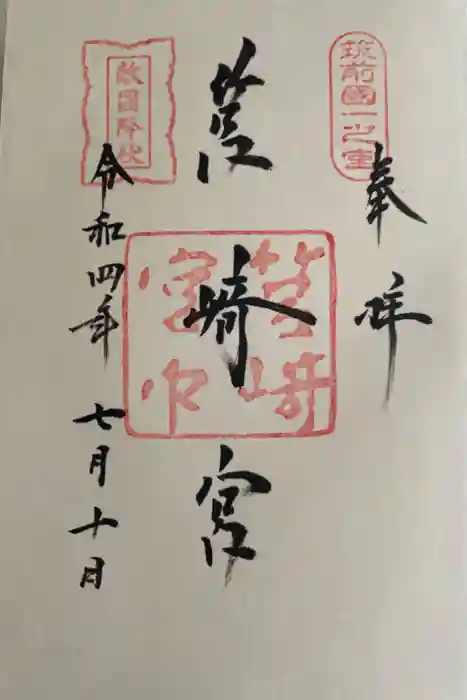 筑前國一之宮
奉拝
筥崎宮
筥崎
宮印
敵國降伏
令和四年 七月十日